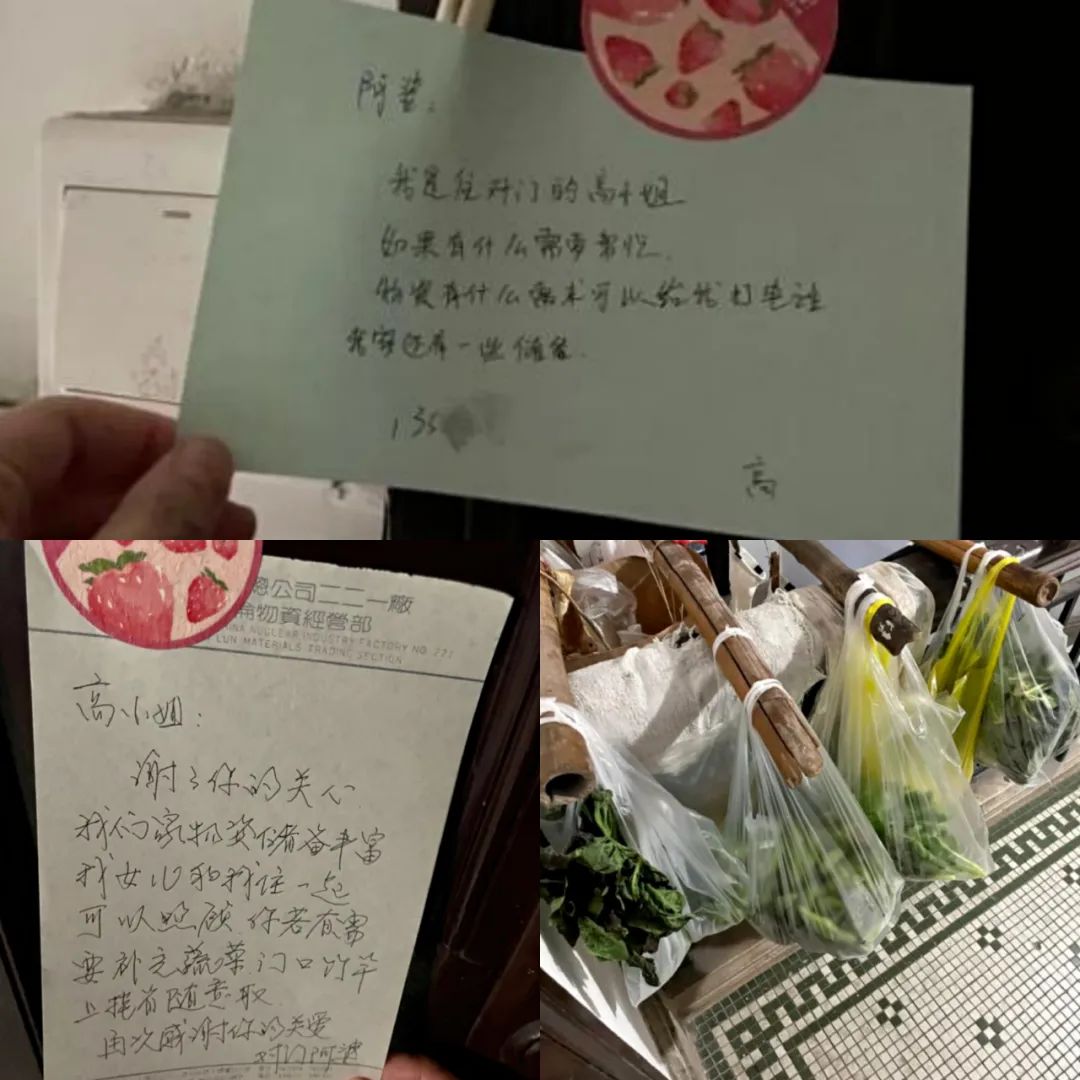 阿婆：
我是住对门的高小姐
如果有什么需要帮忙，
物资有什么需求可以给我打电话
我家还有一些储备.
135
高
总公司二二一廠
物資經營部
INA NUCLEAR INDUSTRY FACTORY NO. 221
LUN MATERIALS TRADING SECTION
高小姐：
谢々你的关心.
我们家物资储备丰富
我女儿和我住一起
可以照顾 你若有需
要补充蔬菜门口竹竿
上挂着随意取
再次感谢你的关爱
对门阿婆